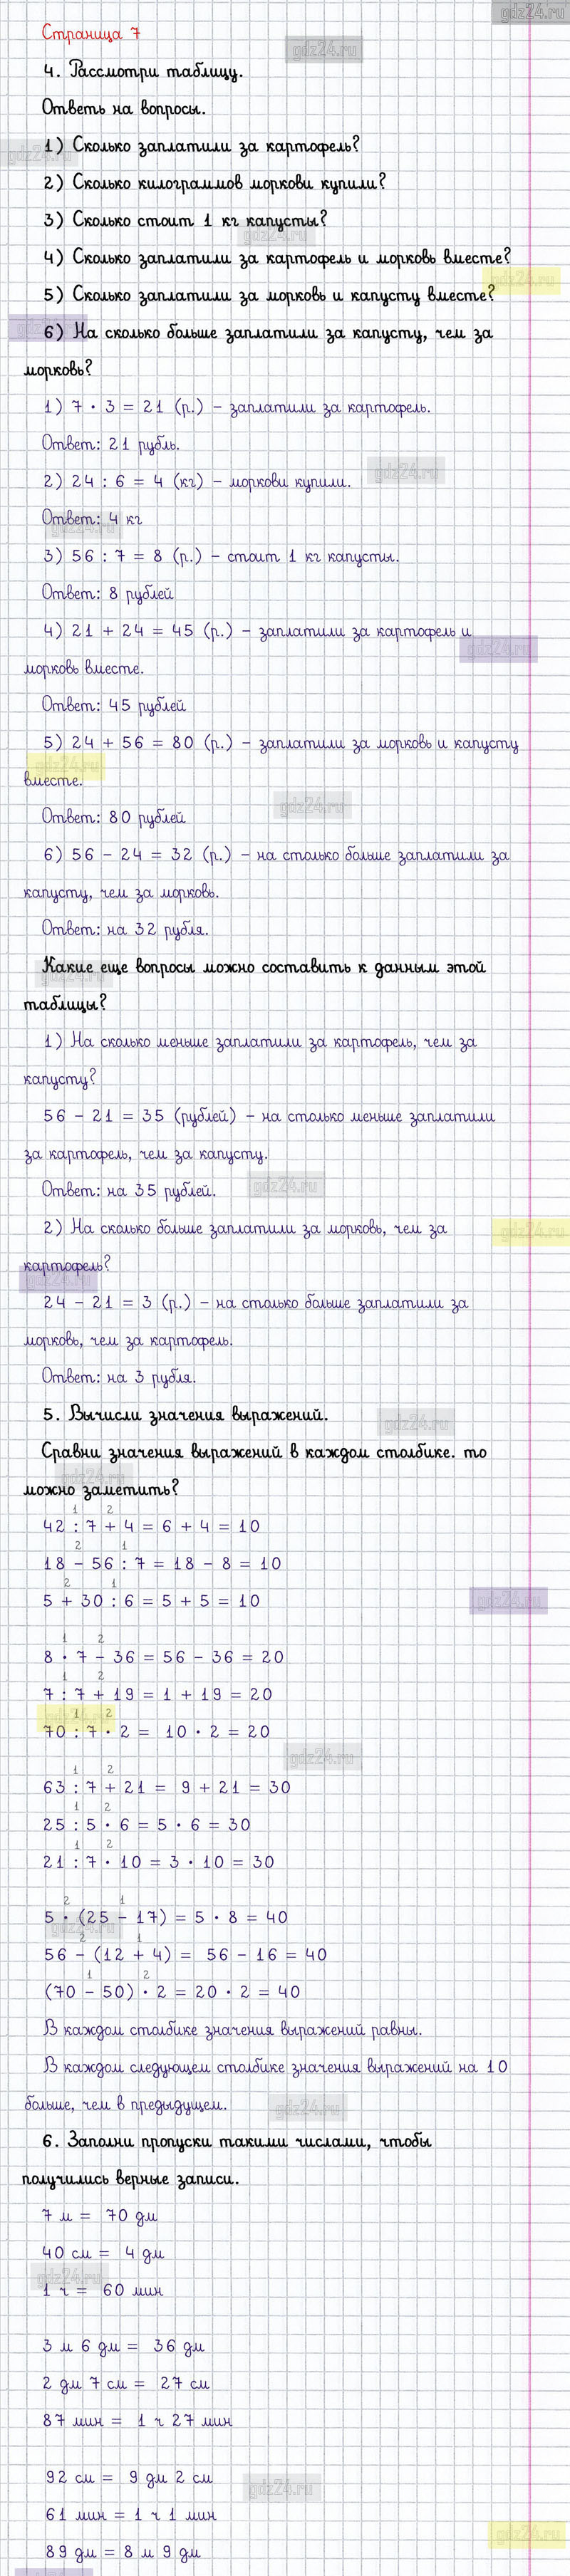 gdz24.ru
Страница 7
gdz24.ru
4. Рассмотри таблицу.
Ответь на вопросы.
gdz24.ru
1) Сколько заплатили за картофель?
2) Сколько килограммов моркови купили?
3) Сколько стоит 1 кг капусты?
gdz24.ru
4) Сколько заплатили за картофель и морковь вместе?
gdz24.ru
5) Сколько заплатили за морковь и капусту вместе?
gdz24.ru
6) На сколько больше заплатили за капусту, чем за
морковь?
1) 7 · 3 = 21 (р.) – заплатили за картофель.
Ответ: 21 рубль.
gdz24.ru
2) 24 : 6 = 4 (кг) – моркови купили.
Ответ: 4 кг
gdz24.ru
3) 56 : 7 = 8 (р.) – стоит 1 кг капусты.
Ответ: 8 рублей
4) 21 + 24 = 45 (р.) – заплатили за картофель и
gdz24.ru
морковь вместе.
Ответ: 45 рублей
5) 24 + 56 = 80 (р.) – заплатили за морковь и капусту
gdz24.ru
вместе.
gdz24.ru
Ответ: 80 рублей
6) 56 – 24 = 32 (р.) – на столько больше заплатили за
капусту, чем за морковь.
Ответ: на 32 рубля.
Какие еще вопросы можно составить к данным этой
gdz24.ru
таблицы?
1) На сколько меньше заплатили за картофель, чем за
капусту?
56 – 21 = 35 (рублей) – на столько меньше заплатили
за картофель, чем за капусту.
gdz24.ru
Ответ: на 35 рублей.
2) На сколько больше заплатили за морковь, чем за
gdz24.ru
картофель?
gdz24.ru
24 – 21 = 3 (р.) – на столько больше заплатили за
морковь, чем за картофель.
Ответ: на 3 рубля.
5. Вычисли значения выражений.
gdz24.ru
Сравни значения выражений в каждом столбике. то
gdz24.ru
можно заметить?
1 2
42 : 7 + 4 = 6 + 4 = 10
2 1
18 – 56 : 7 = 18 – 8 = 10
2 1
5 + 30 : 6 = 5 + 5 = 10
gdz24.ru
1 2
8 · 7 – 36 = 56 – 36 = 20
1 2
7 : 7 + 19 = 1 + 19 = 20
gdz24.ru
1 2
70 : 7 · 2 = 10 · 2 = 20
gdz24.ru
1 2
63 : 7 + 21 = 9 + 21 = 30
1 2
25 : 5 · 6 = 5 · 6 = 30
1 2
21 : 7 · 10 = 3 · 10 = 30
2 1
5 · (25 – 17) = 5 · 8 = 40
gdz24.ru
2 1
56 – (12 + 4) = 56 – 16 = 40
1 2
(70 – 50) · 2 = 20 · 2 = 40
В каждом столбике значения выражений равны.
В каждом следующем столбике значения выражений на 10
больше, чем в предыдущем.
gdz24.ru
6. Заполни пропуски такими числами, чтобы
получились верные записи.
7 м = 70 дм
40 см = 4 дм
gdz24.ru
1 ч = 60 мин
3 м 6 дм = 36 дм
2 дм 7 см = 27 см
87 мин = 1 ч 27 мин
92 см = 9 дм 2 см
gdz24.ru
61 мин = 1 ч 1 мин
gdz24.ru
89 дм = 8 м 9 дм